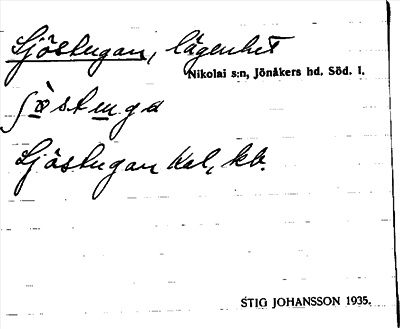 Sjöstugan, lägenhet
Nikolai s:n, Jönåkers hd, Söd. l.
Sjöstugan kal, kb.
STIG JOHANSSON 1935.